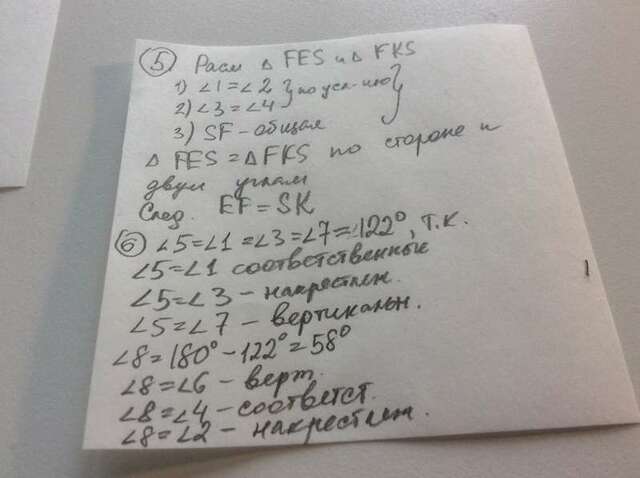 5) Расм △ FES и △ FKS
1) ∠1=∠2 } по усл-ию
2) ∠3=∠4
3) SF - общая
△ FES = △ FKS по стороне и
двум углам
След. EF = SK
6) ∠5=∠1=∠3=∠7=122°, т.к.
∠5=∠1 соответственные
∠5=∠3 - накрестлеж.
∠5=∠7 - вертикальн.
∠8=180°-122°=58°
∠8=∠6 - верт.
∠8=∠4 - соответст.
∠8=∠2 - накрестлеж.